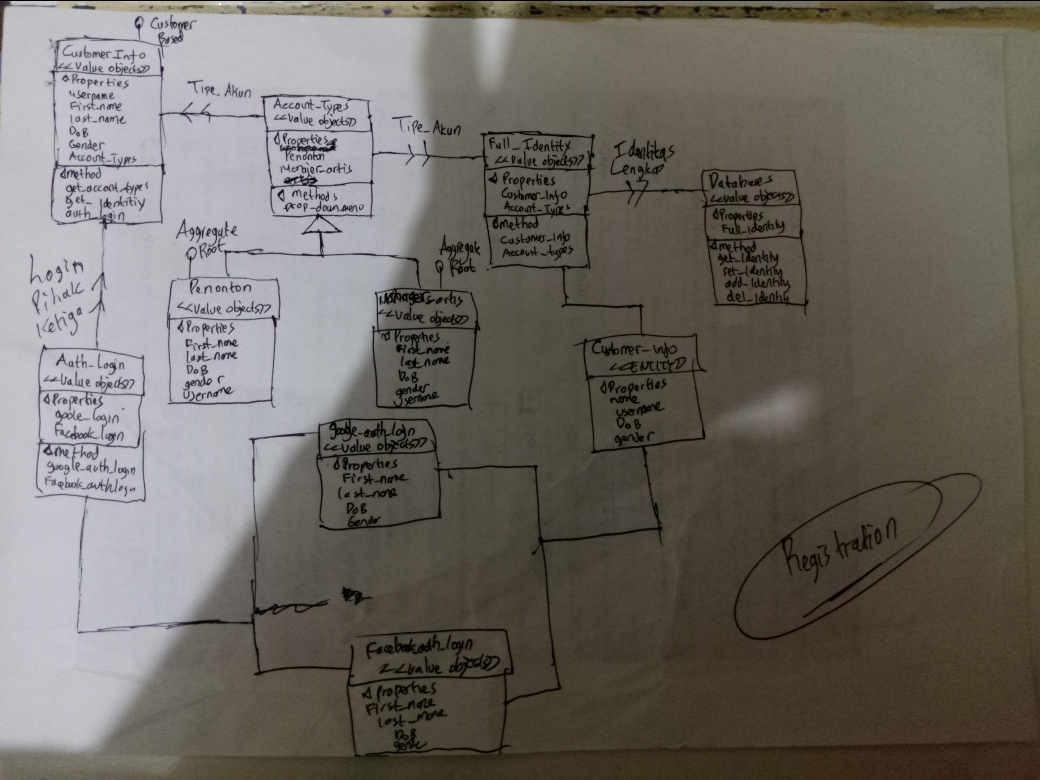 Customer
Based
Customer_Info
<<Value objects>>
Properties
username
First_name
last_name
DoB
Gender
Account_Types
method
get_accont_types
auth_login
Tipe_Akun
Account_Types
<<Value objects>>
Properties
Penonton
Manajer_artis
methods
drop_down_menu
Tipe_Akun
Full_Identity
<<Value objects>>
Properties
Customer_Info
Account_Types
method
Customer_Info
Account_types
Identitas
Lengkap
Databases
<<Value objects>>
Properties
Full_identity
method
get_identity
set_identity
add_identity
del_identity
Aggregate
Root
Penonton
<<Value objects>>
Properties
First_name
last_name
DoB
gender
Username
Aggregate
Root
<<Value objects>>
Properties
First_name
last_name
DoB
gender
Username
Login
Pihak
Ketiga
Auth_Login
<<Value objects>>
Properties
goole_login
Facebook_login
method
google_auth_login
Facebook_auth_login
Customer_info
<<ENTITY>>
Properties
name
username
DoB
gender
google_auth_login
<<Value objects>>
Properties
First_name
last_name
DoB
Gender
Registration
Facebook_auth_login
<<Value objects>>
Properties
First_name
Last_name
DoB
gender